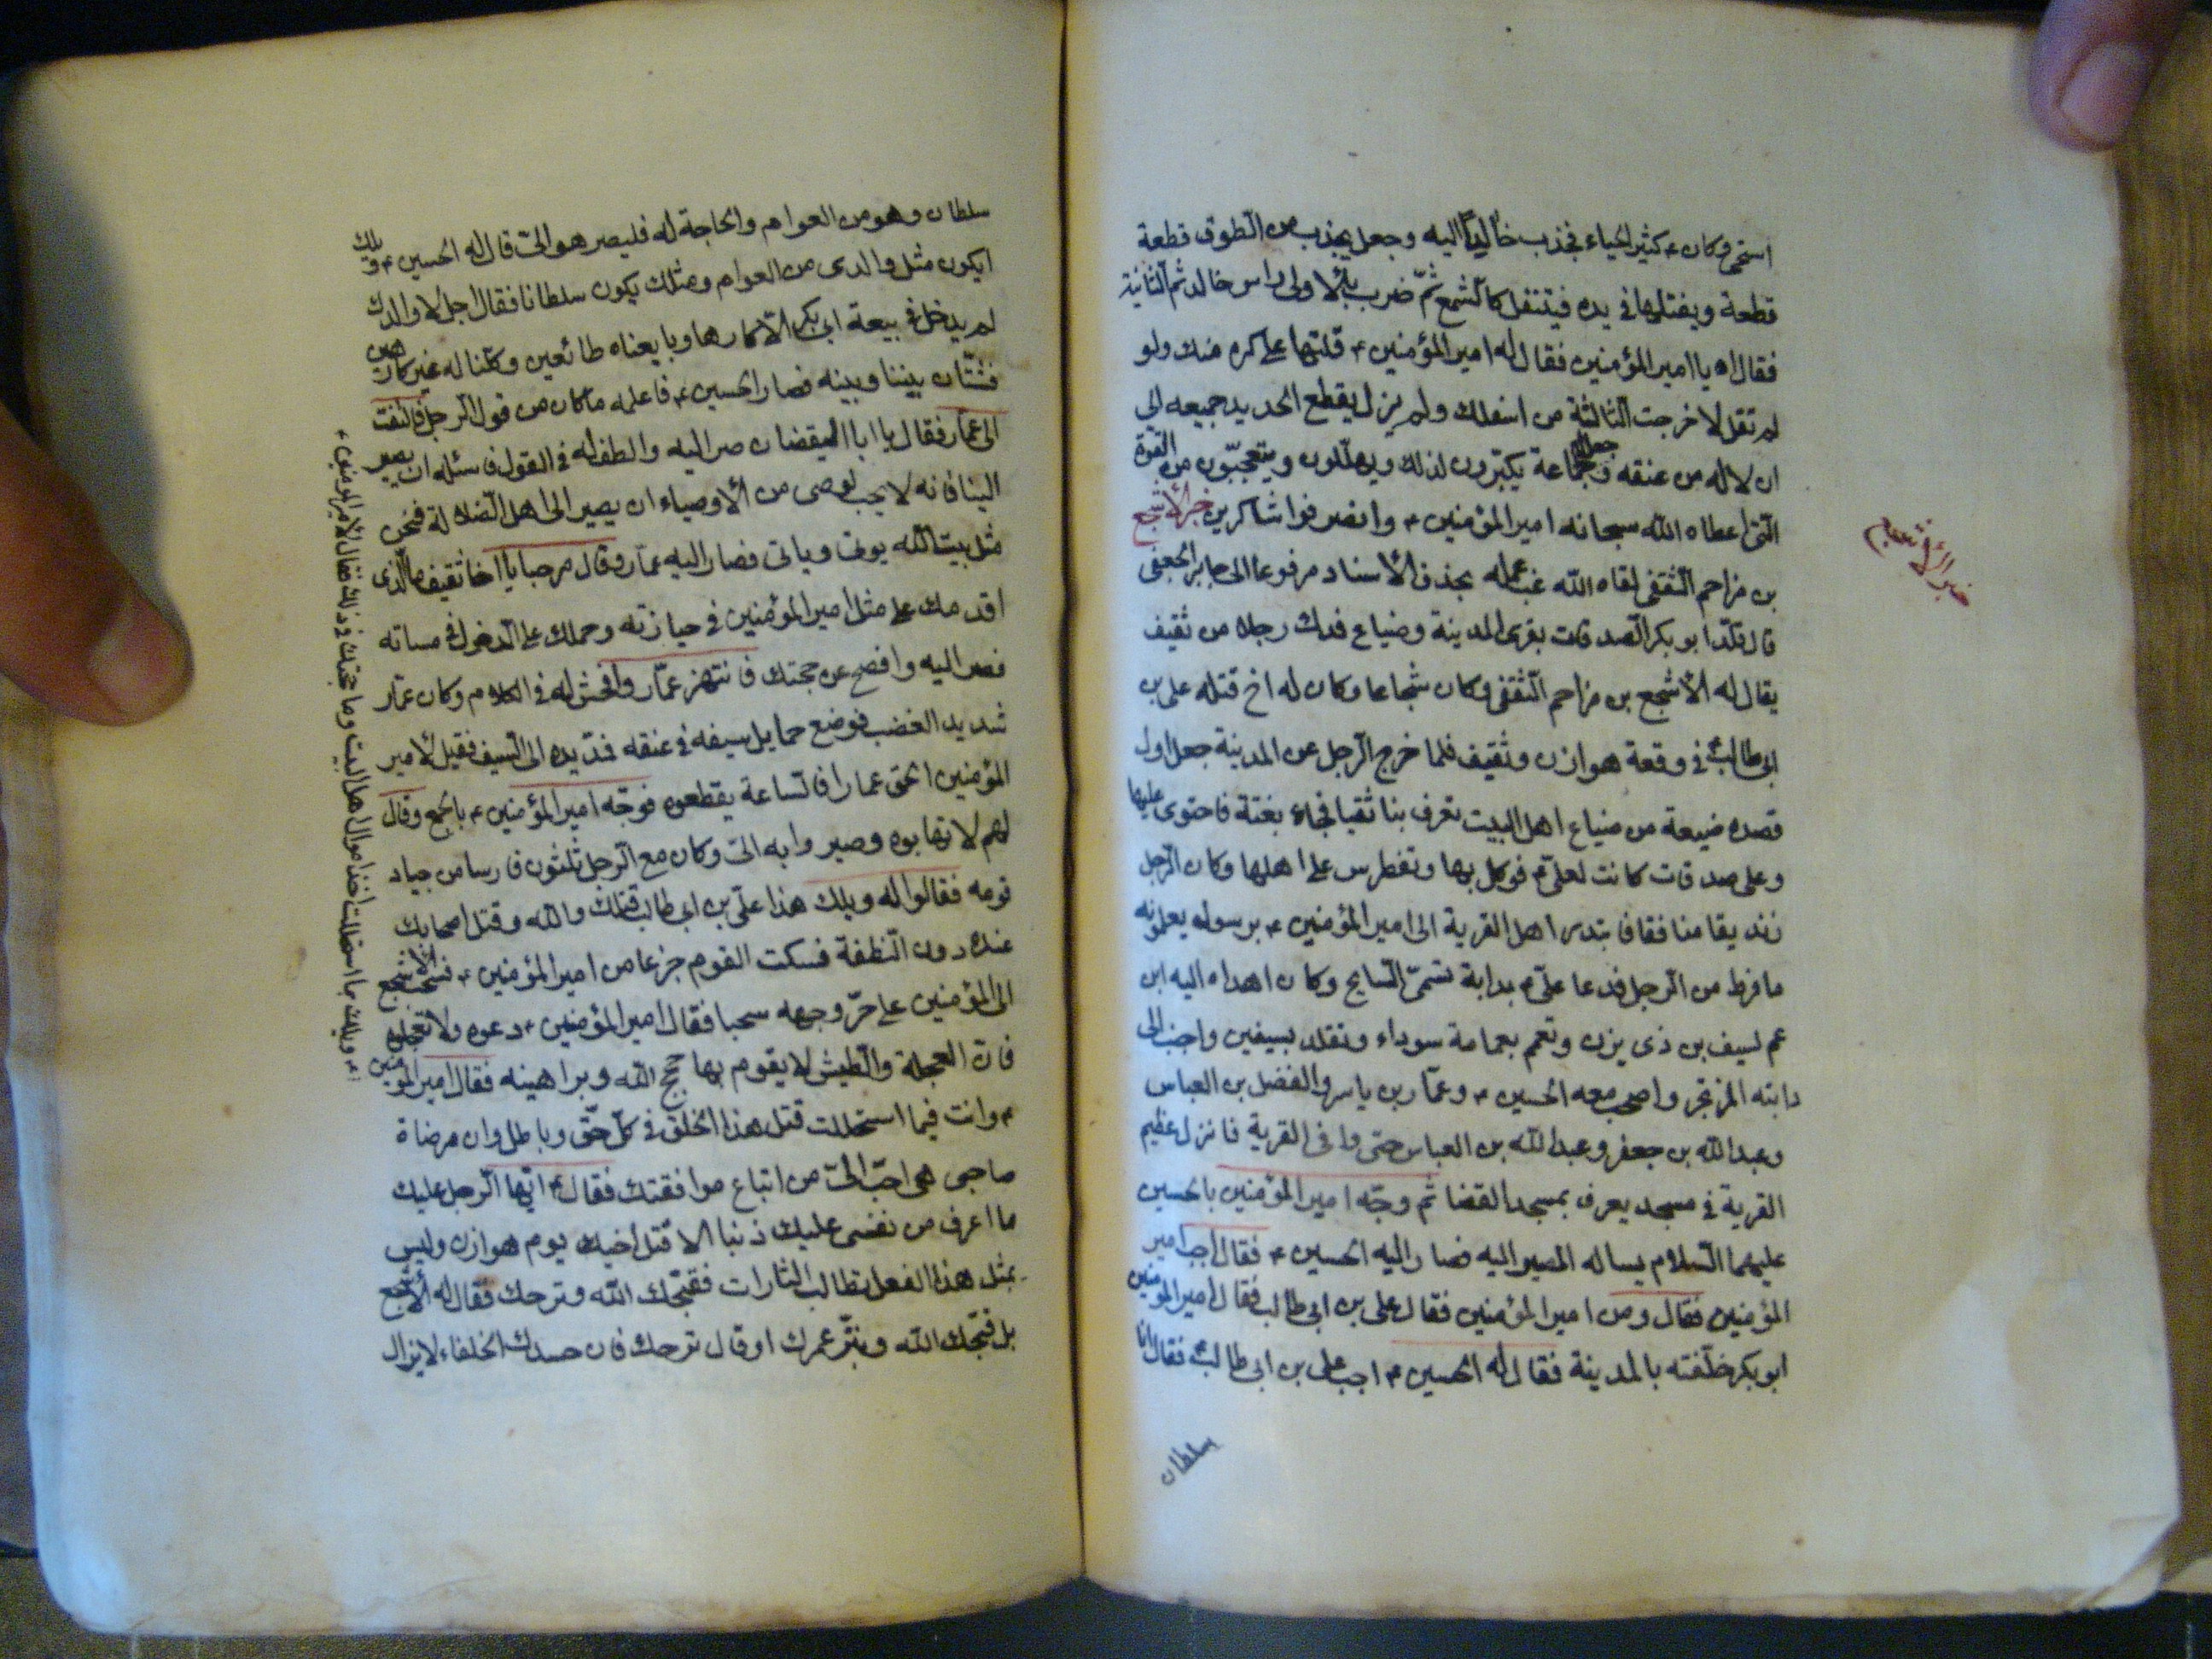 استحى وكان ء كثير الحياء فجذب خالداً اليه وجعل يجذب من الطوق قطعة
قطعة ويفتلها في يده فيتفتل كالشمع ثم ضرب بالاولى راس خالد ثم الثانية
فقال اه يا امير المؤمنين فقال له امير المؤمنين ء قلتها على كره منك ولو
لم تقل لاخرجت الثالثة من اسفلك ولم يزل يقطع الحديد جميعه الى
ان لاله من عنقه وجعل الجماعة يكبّرون لذلك ويهللون ويتعجبون من القوة
التي اعطاه الله سبحانه امير المؤمنين ء وانصرفوا شاكرين خبر الأشجع
بن مزاحم الثقفي لقاه الله غب عمله بحذف الأسناد مرفوعا الى جابر الجعفي
قال قلّد ابو بكر الصدقات بقرى المدينة وضياع فدك رجلا من ثقيف
يقال له الأشجع بن مزاحم الثقفي وكان شجاعا وكان له اخ قتله على بن
ابى طالب في وقعة هوازن وثقيف فلما خرج الرجل عن المدينة جعل اول
قصده ضيعة من ضياع اهل البيت تعرف ببانقيا فجاء بغتة فاحتوى عليها
وعلى صدقات كانت لعلى ء فوكل بها وتغطرس على اهلها وكان الرجل
زنديقا منافقا فابتدر اهل القرية الى امير المؤمنين ء برسوله يعلمونه
ما فرط من الرجل فدعا علىّ ء بدابة تسمى السابح وكان اهداه اليه ابن
عم لسيف بن ذى يزن وتعمم بعمامة سوداء وتقلد بسيفين واجنب الى
دابته المرتجز واصحب معه الحسين ء وعمّار بن ياسر والفضل بن العباس
وعبد الله بن جعفر وعبد الله بن العباس حتى وافى القرية فانزل عظيم
القرية في مسجد يعرف بمسجد القضا ثم وجّه امير المؤمنين بالحسين
عليهما السلام يساله المصير اليه فصار اليه الحسين ء فقال اجب امير
المؤمنين فقال ومن امير المؤمنين فقال على بن ابى طالب فقال امير المؤمنين
ابو بكر خلّفته بالمدينة فقال له الحسين ء اجب على بن ابى طالب فقال انا
سلطان
خبر الأشجع
سلطان وهو من العوام والحاجة له فليصر هو الىّ قال له الحسين ء ويلك
ايكون مثل والدى من العوام ومثلك يكون سلطانا فقال اجل لا والدك
لم يدخل في بيعة ابى بكر الا كارها وبايعناه طائعين وكنّا له غير كارهين
فشتّان بيننا وبينه فصار الحسين ء فاعلمه ما كان من قول الرجل فالتفت
الى عمّار فقال يا ابا اليقضان صر اليه والطف له في القول فاسئله ان يصير
الينا فانه لا يجب لوصى من الأوصياء ان يصير الى اهل الضلالة فنحن
مثل بيت الله يوتى وياتى فصار اليه عمّار وقال مرحبا يا اخا ثقيف ما الذى
اقدمك على مثل امير المؤمنين في حيازته وحملك على الدخول في مساته
فصر اليه وافصح عن حجتك فانتهز عمّار وافحش له في الكلام وكان عمّار
شديد الغضب فوضع حمايل سيفه في عنقه فمدّ يده الى السيف فقيل لأمير
المؤمنين الحق عمارا فالساعة يقطعوه فوجّه امير المؤمنين ء بالجمع وقال
لهم لا تهابوه وصيروا به الىّ وكان مع الرجل ثلثون فارسا من جياد
قومه فقالوا له ويلك هذا علىّ بن ابى طالب قتلك والله وقتل اصحابك
عنده دون النظفة فسكت القوم جزعا من امير المؤمنين ء فسحب الأشجع
الى المؤمنين على حرّ وجهه سحبا فقال امير المؤمنين ء دعوه ولا تعجلوا
فانّ العجلة والطيش لا يقوم بها حجج الله وبراهينه فقال امير المؤمنين
ء وانت فيما استحللت قتل هذا الخلق في كلّ حقّ وباطل وان مرضاة
صاحبى هى احبّ الىّ من اتباع موافقتك فقال ء ايّها الرجل عليك
ما اعرف من نفسى عليك ذنبا الا قتل اخيك يوم هوازن وليس
بمثل هذا الفعل تطالب الثارات فقبّحك الله وترحك فقال له الأشجع
بل قبّحك الله وبتّر عمرك او قال ترحك فان حسدك الخلفاء لا يزال
ء ويلك بما استحللت اخذ اموال اهل البيت وما حجتك في ذلك فقال لأمير المؤمنين ء